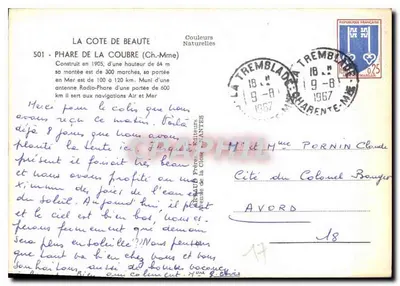 LA COTE DE BEAUTE
Couleurs
Naturelles
501 - PHARE DE LA COUBRE (Ch.-Mme)
Construit en 1905, d'une hauteur de 64 m
sa montée est de 300 marches, sa portée
en Mer est de 100 à 120 km. Muni d'une
antenne Radio-Phare d'une portée de 600
km il sert aux navigations Air et Mer
REPUBLIQUE FRANÇAISE
LA TREMBLADE
18 H
9-8
1967
CHARENTE-MME
LA TREMBLADE
18 H
9-8
1967
CHARENTE-MME
Merci pour le colis que nous
avons reçu ce matin. Voilà
déjà 8 jours que nous avons
planté la tente
présent il faisait très beau
et nous avons profité au ma
ximum des joies de l'eau et
du soleil. Aujourd'hui il pleut
et le ciel est bien bas, nous es-
pérons fermement que demain
sera plus ensoleillé. Nous pensons
que tout va bien chez vous et vous
souhaitons aussi de bonnes vacances
M. et Mme PORNIN Claude
Cité du Colonel Banger
AVORD
18
17